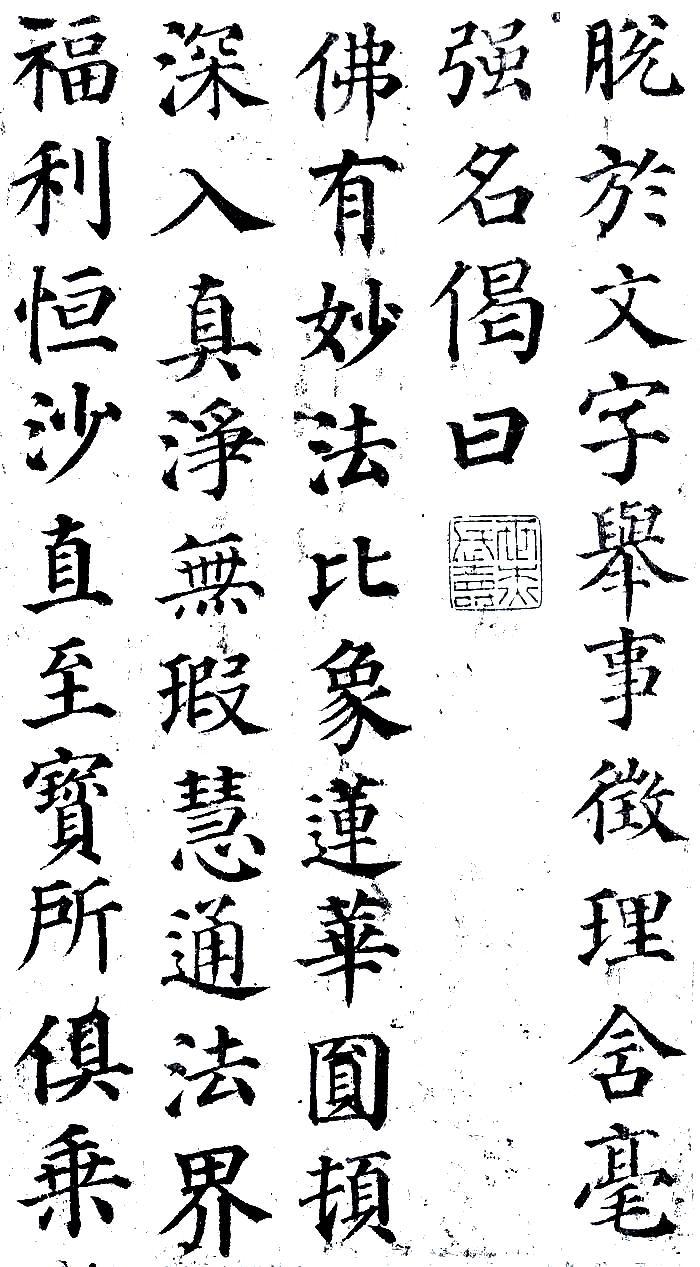 脫於文字舉事徵理含毫
强名偈曰
佛有妙法比象蓮華圓頓
深入真淨無瑕慧通法界
福利恒沙直至寶所俱乗